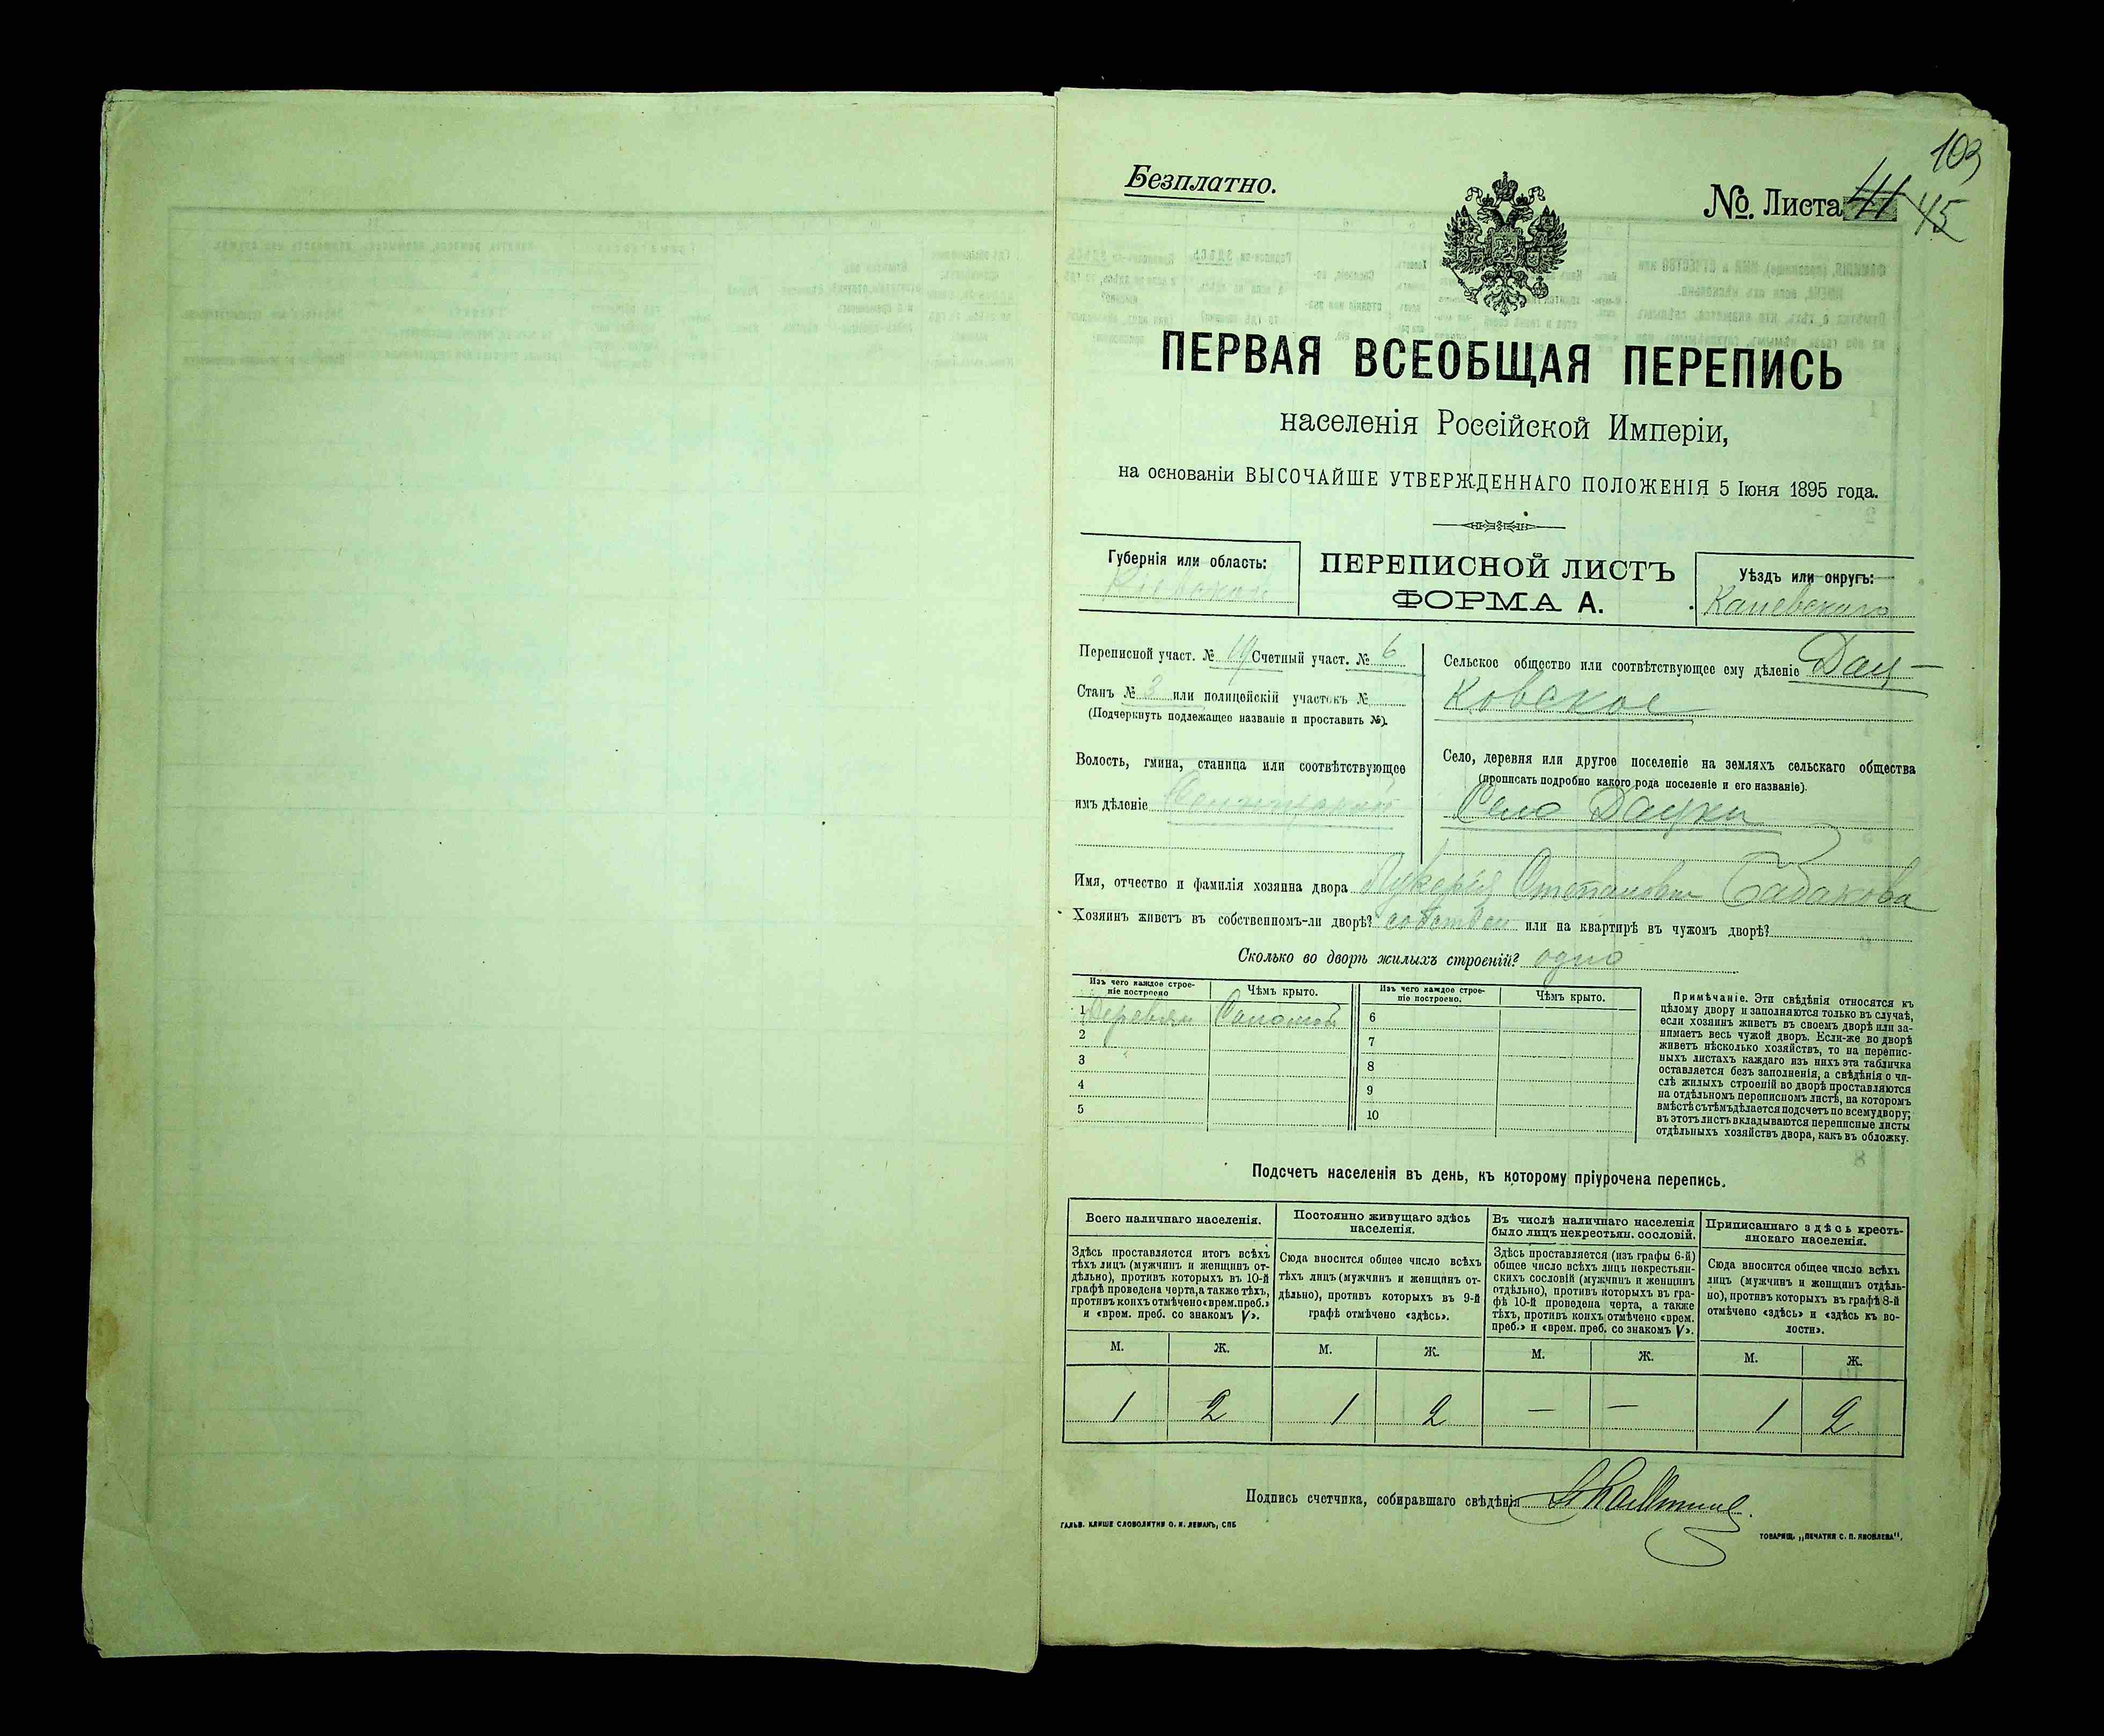 103
Безплатно.
№. Листа 41 45
ПЕРВАЯ ВСЕОБЩАЯ ПЕРЕПИСЬ
населенія Россійской Имперіи,
на основаніи ВЫСОЧАЙШЕ УТВЕРЖДЕННАГО ПОЛОЖЕНІЯ 5 Іюня 1895 года.
Губернія или область:
Кіевская
ПЕРЕПИСНОЙ ЛИСТЪ
ФОРМА А.
Уѣздъ или округъ:
Каневскаго
Переписной участ. № 19 Счетный участ. № 6
Станъ № 3 или полицейскій участокъ №
(Подчеркнуть подлежащее названіе и проставить №).
Волость, гмина, станица или соотвѣтствующее
имъ дѣленіе
Сельское общество или соотвѣтствующее ему дѣленіе Дац-
ковское
Село, деревня или другое поселеніе на земляхъ сельскаго общества
(прописать подробно какого рода поселеніе и его названіе).
Село Дацки
Имя, отчество и фамилія хозяина двора Лукерія Степановн Бабакова
Хозяинъ живетъ въ собственномъ-ли дворѣ? собствен или на квартирѣ въ чужомъ дворѣ?
Сколько во дворѣ жилыхъ строеній? одно
Изъ чего каждое строе-
ніе построено
Чѣмъ крыто.
Изъ чего каждое строе-
ніе построено.
Чѣмъ крыто.
1 Деревян Соломой 6
2 7
3 8
4 9
5 10
Примѣчаніе. Эти свѣдѣнія относятся къ
цѣлому двору и заполняются только въ случаѣ,
если хозяинъ живетъ въ своемъ дворѣ или за-
нимаетъ весь чужой дворъ. Если-же во дворѣ
живетъ нѣсколько хозяйствъ, то на перепис-
ныхъ листахъ каждаго изъ нихъ эта табличка
оставляется безъ заполненія, а свѣдѣнія о чи-
слѣ жилыхъ строеній во дворѣ проставляются
на отдѣльномъ переписномъ листѣ, на которомъ
вмѣстѣ съ тѣмъ дѣлается подсчетъ по всему двору;
въ этотъ листъ вкладываются переписные листы
отдѣльныхъ хозяйствъ двора, какъ въ обложку.
Подсчетъ населенія въ день, къ которому пріурочена перепись.
Всего наличнаго населенія.
Здѣсь проставляется итогъ всѣхъ
тѣхъ лицъ (мужчинъ и женщинъ от-
дѣльно), противъ которыхъ въ 10-й
графѣ проведена черта, а также тѣхъ,
противъ коихъ отмѣчено «врем. преб.»
и «врем. преб. со знакомъ V».
Постоянно живущаго здѣсь
населенія.
Сюда вносится общее число всѣхъ
тѣхъ лицъ (мужчинъ и женщинъ от-
дѣльно), противъ которыхъ въ 9-й
графѣ отмѣчено «здѣсь».
Въ числѣ наличнаго населенія
было лицъ некрестьян. сословій.
Здѣсь проставляется (изъ графы 6-й)
общее число всѣхъ лицъ некрестьян-
скихъ сословій (мужчинъ и женщинъ
отдѣльно), противъ которыхъ въ гра-
фѣ 10-й проведена черта, а также
тѣхъ, противъ коихъ отмѣчено «врем.
преб.» и «врем. преб. со знакомъ V».
Приписаннаго здѣсь кресть-
янскаго населенія.
Сюда вносится общее число всѣхъ
лицъ (мужчинъ и женщинъ отдѣль-
но), противъ которыхъ въ графѣ 8-й
отмѣчено «здѣсь» и «здѣсь къ во-
лости».
М. Ж. М. Ж. М. Ж. М. Ж.
1 2 1 2 — — 1 2
Подпись счетчика, собиравшаго свѣдѣнія
ГАЛЬВ. КЛИШЕ СЛОВОЛИТНИ О. И. ЛЕМАНЪ, СПБ
ТОВАРИЩ. „ПЕЧАТНЯ С. П. ЯКОВЛЕВА".